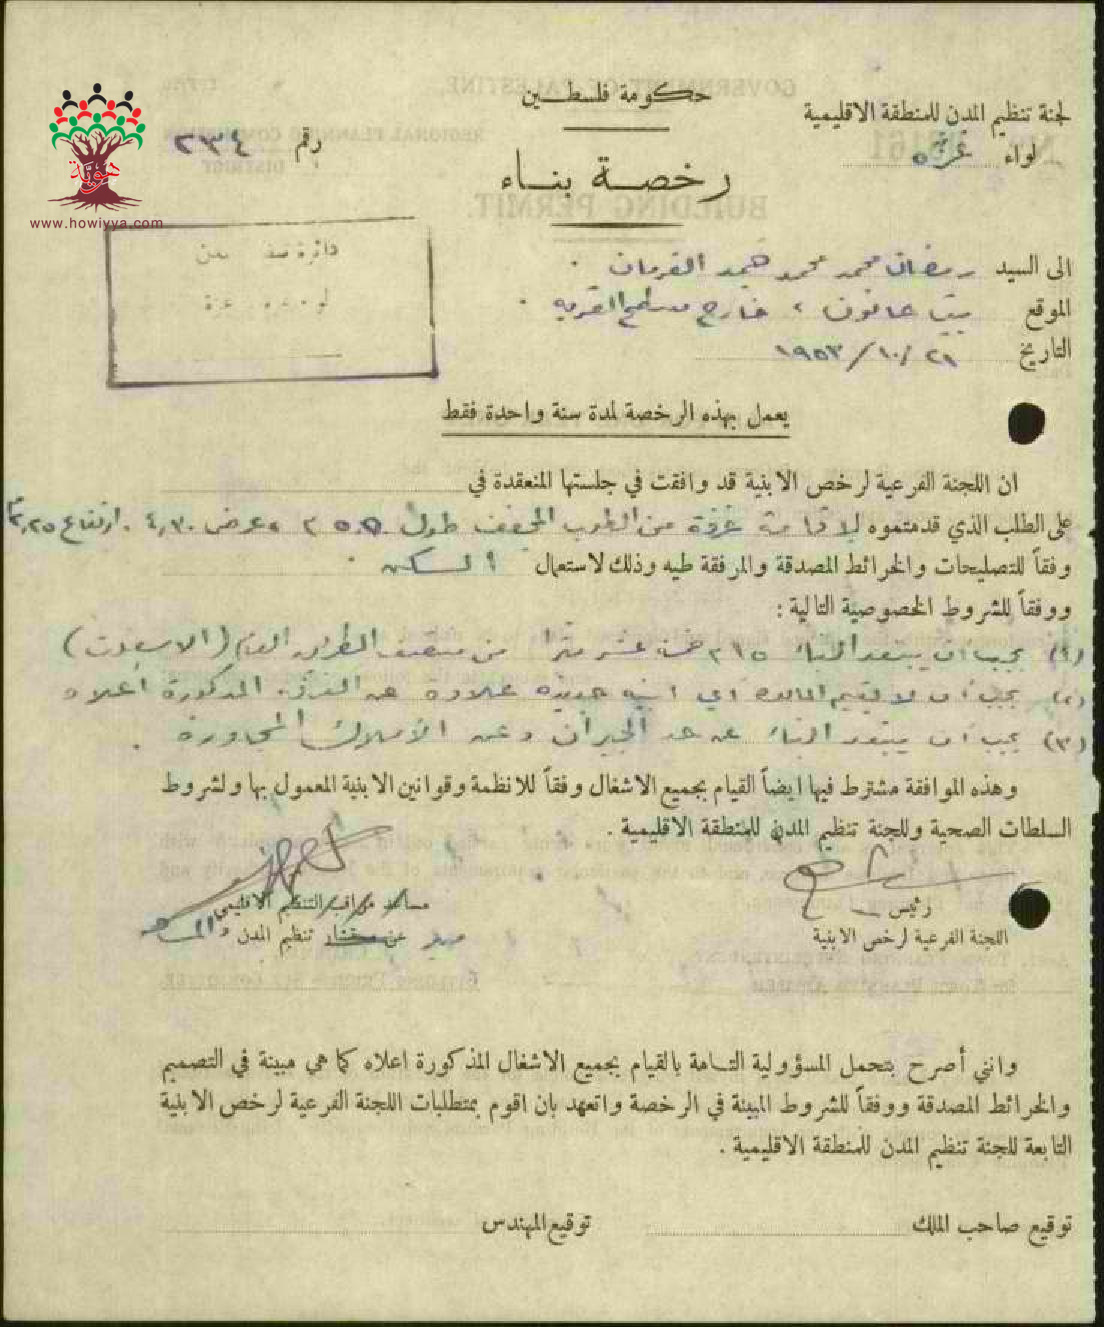 حكومة فلسطين
لجنة تنظيم المدن للمنطقة الاقليمية
لواء غزة
رقم ٢٣٤
رخصة بناء
هوية
www.howiyya.com
دائرة
الى السيد رمضان محمد محمد القرمان
الموقع بيت حانون ، خارج مسطح القرية
التاريخ ٢١/١٠/١٩٥٣
يعمل بهذه الرخصة لمدة سنة واحدة فقط
ان اللجنة الفرعية لرخص الابنية قد وافقت في جلستها المنعقدة في
على الطلب الذي قدمتموه لاقامة غرفة من الطوب المجفف طول وعرض ٤,٣٠ . ارتفاع
وفقاً للتصليحات والخرائط المصدقة والمرفقة طيه وذلك لاستعمال السكن .
ووفقاً للشروط الخصوصية التالية :
(١) يجب ان يبتعد البناء ١٥ خمسة عشر مترا من منتصف الطريق العام (الاسفلت)
(٢) يجب أن لا تقيم أي ابنية جديدة علاوة عن المذكورة اعلاه
(٣) يجب أن يبتعد البناء عن حد الجيران وعن الأملاك المجاورة .
وهذه الموافقة مشترط فيها ايضاً القيام بجميع الاشغال وفقاً للانظمة وقوانين الابنية المعمول بها ولشروط
السلطات الصحية وللجنة تنظيم المدن للمنطقة الاقليمية .
رئيس
اللجنة الفرعية لرخص الابنية
مساعد مراقب التنظيم الاقليمي
عن مستشار تنظيم المدن
وانني أصرح بتحمل المسؤولية التامة بالقيام بجميع الاشغال المذكورة اعلاه كما هي مبينة في التصميم
والخرائط المصدقة ووفقاً للشروط المبينة في الرخصة واتعهد بان اقوم بمتطلبات اللجنة الفرعية لرخص الابنية
التابعة للجنة تنظيم المدن للمنطقة الاقليمية .
توقيع صاحب الملك
توقيع المهندس